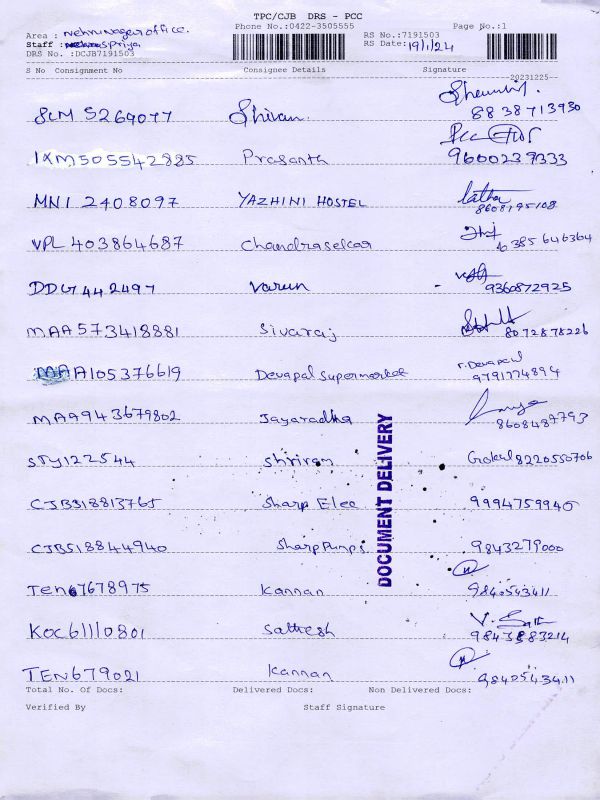 TPC/CJB DRS - PCC
Phone No.:0422-3505555 Page No.:1
Area : Nehrunager office.
RS No.:7191503
Staff : Priya
RS Date: 19/1/24
DRS No. :DCJB7191503
S No Consignment No Consignee Details Signature
20231225
SLM 5269077 Shivan.
8838713930
IXM505542885 Prasanth 9600239333
MNI 2408097 YAZHINI HOSTEL latha
8608195108
VPL 403864687 Chandrasekar 6385646364
DDG442497 Varun 9360872925
MAA573418881 Sivaraj 8072878226
MAA105376619 Devapal Supermarket r. Devapaul
9791774894
MAA943679802 Jayaradha 8608487793
STY122544 Shriram Gokul 8220550706
CJB318813765 Sharp Elee 9994759940
DOCUMENT DELIVERY
CJB518844940 Sharp Pumps 9843279000
TEN67678975 Kannan 9840543411
KOC61110801 Sathesh 9843883214
TEN679021 Kannan 9840543411
Total No. Of Docs: Delivered Docs: Non Delivered Docs:
Verified By Staff Signature